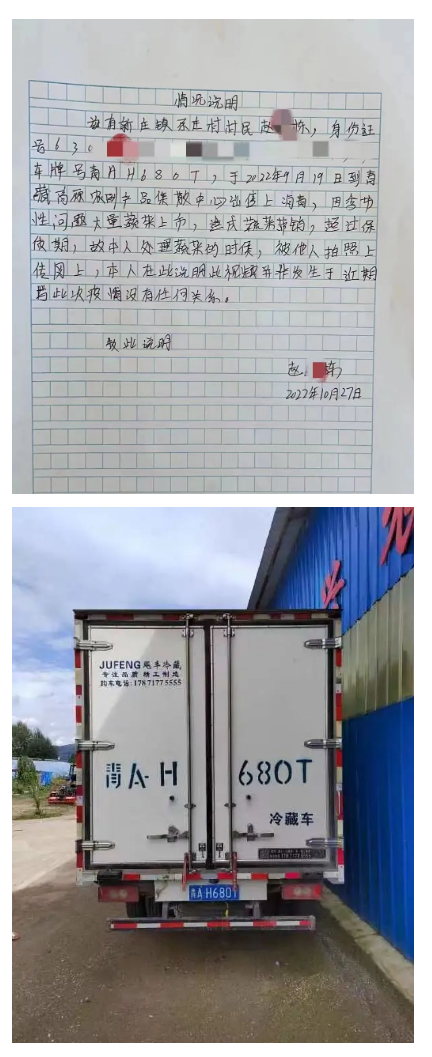 情况说明
兹有新庄镇 村村民赵 栋，身份证
号630
车牌号青AH680T，于2022年9月19日到青
藏高原 农产品集散中心 售上海青，因季节
性问题大量蔬菜上市，造成蔬菜滞销，超过保
质期，故本人处理蔬菜的时候，被他人拍照上
传网上，本人在此说明此视频并非发生于近期
与此次疫情没有任何关系。
特此说明
赵 栋
2022年10月27日
JUFENG 飓丰冷藏
专注品质 精工制造
购车电话：17871775555
青A·H 680T
冷藏车
青A H680T